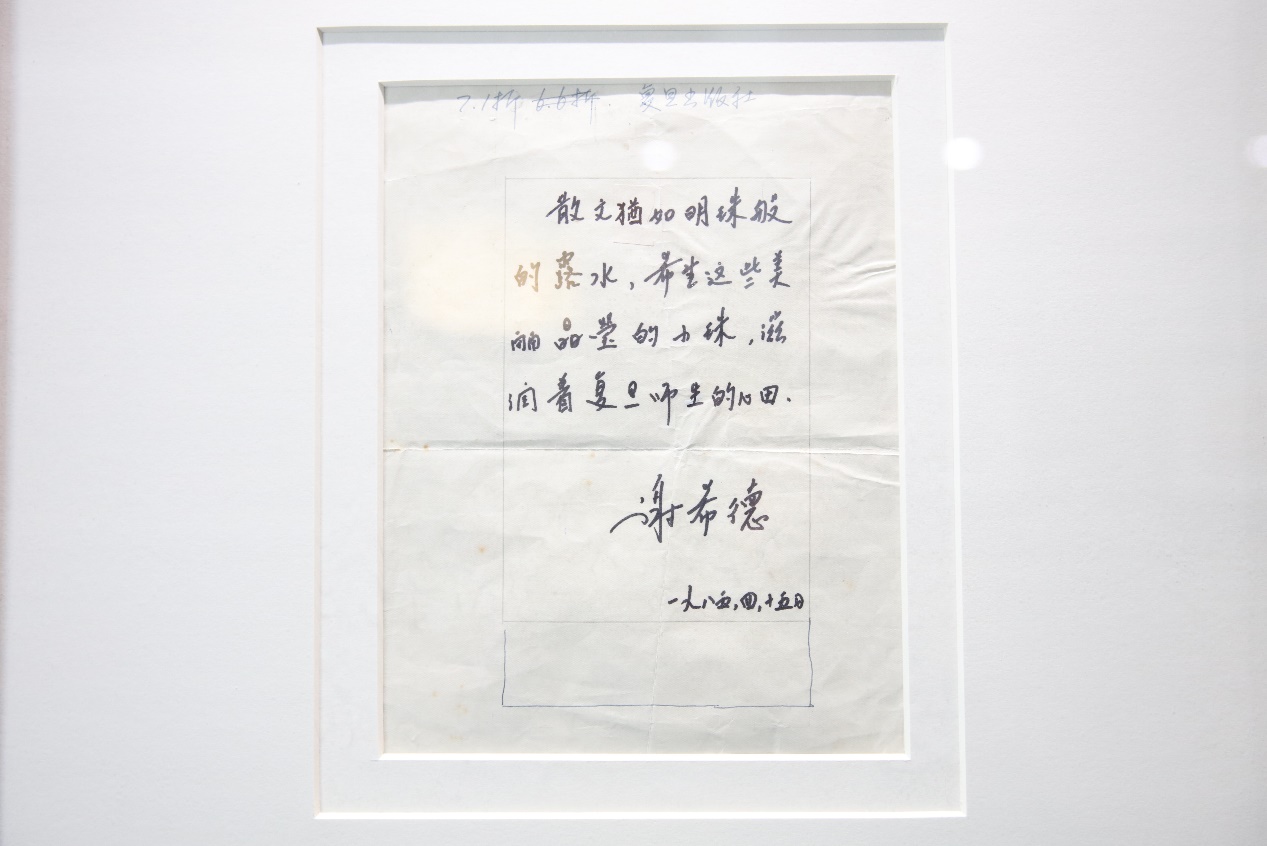 7.1折 6.6折. 复旦出版社
散文犹如明珠般
的露水，希望这些美
丽晶莹的小珠，滋
润着复旦师生的心田.
谢希德
一九八五,四,十五日